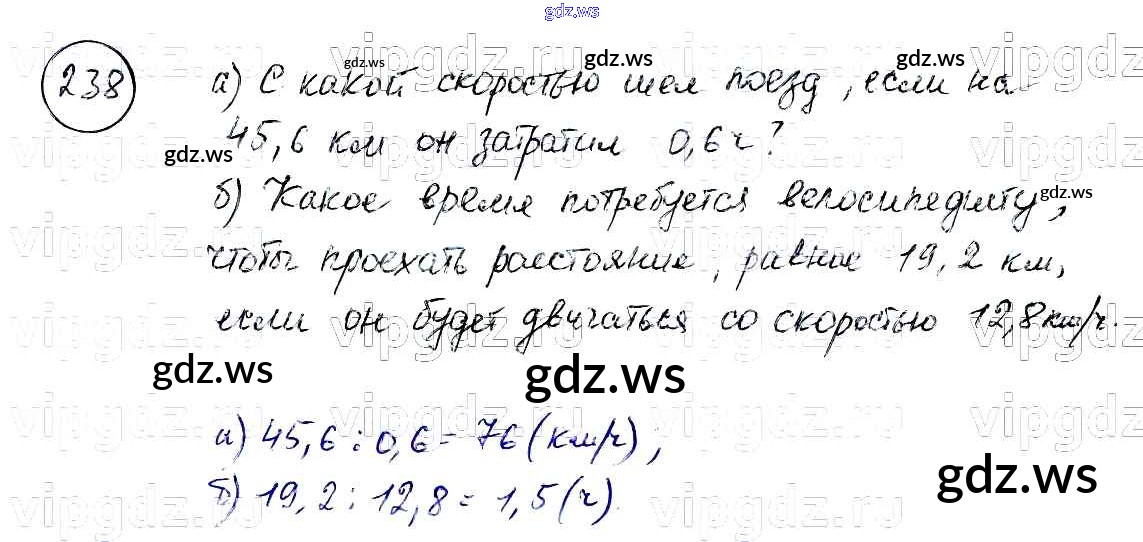 gdz.ws
238 а) С какой скоростью шел поезд, если на
45,6 км он затратил 0,6 ч?
б) Какое время потребуется велосипедисту,
чтобы проехать расстояние, равное 19,2 км,
если он будет двигаться со скоростью 12,8 км/ч.
а) 45,6 : 0,6 = 76 (км/ч);
б) 19,2 : 12,8 = 1,5 (ч).
gdz.ws
gdz.ws
gdz.ws
gdz.ws
gdz.ws
gdz.ws
gdz.ws
gdz.ws
vipgdz.ru